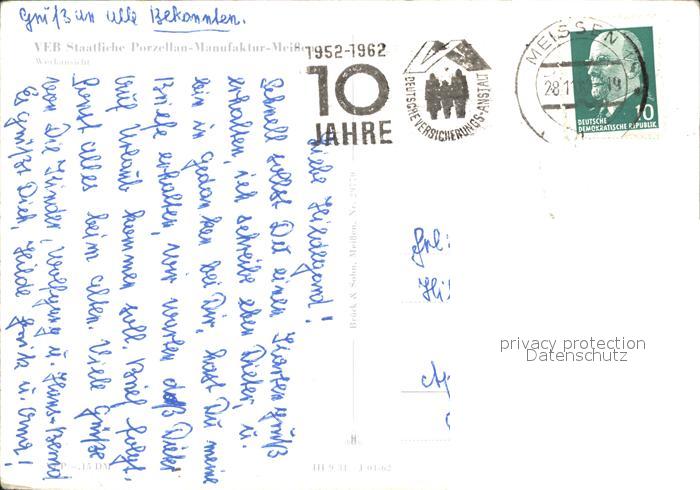 Grüß an alle Bekannten.
VEB Staatliche Porzellan-Manufaktur-Meißen
Werkansicht
1952-1962
10
JAHRE
DEUTSCHE VERSICHERUNGS-ANSTALT
MEISSEN
28.11
10
DEUTSCHE
DEMOKRATISCHE REPUBLIK
Liebe Hildegard!
Schnell sollst Du einen Kartengrüß
erhalten, ich schreibe eben Dieter, u.
bin in Gedanken bei Dir, hast Du meine
Briefe erhalten, wir warten daß Dieter
auf Urlaub kommen soll. Brief folgt.
Sonst alles beim alten. Viele Grüße
von Die Kinder, Wolfgang u. Hans-Bernd
Es grüßt Dich, Hilde u. Oma!
Brück & Sohn, Meißen, Nr.
Frl.
Hi
privacy protection
Datenschutz
-.15 DM
III 9 31 J 01/62